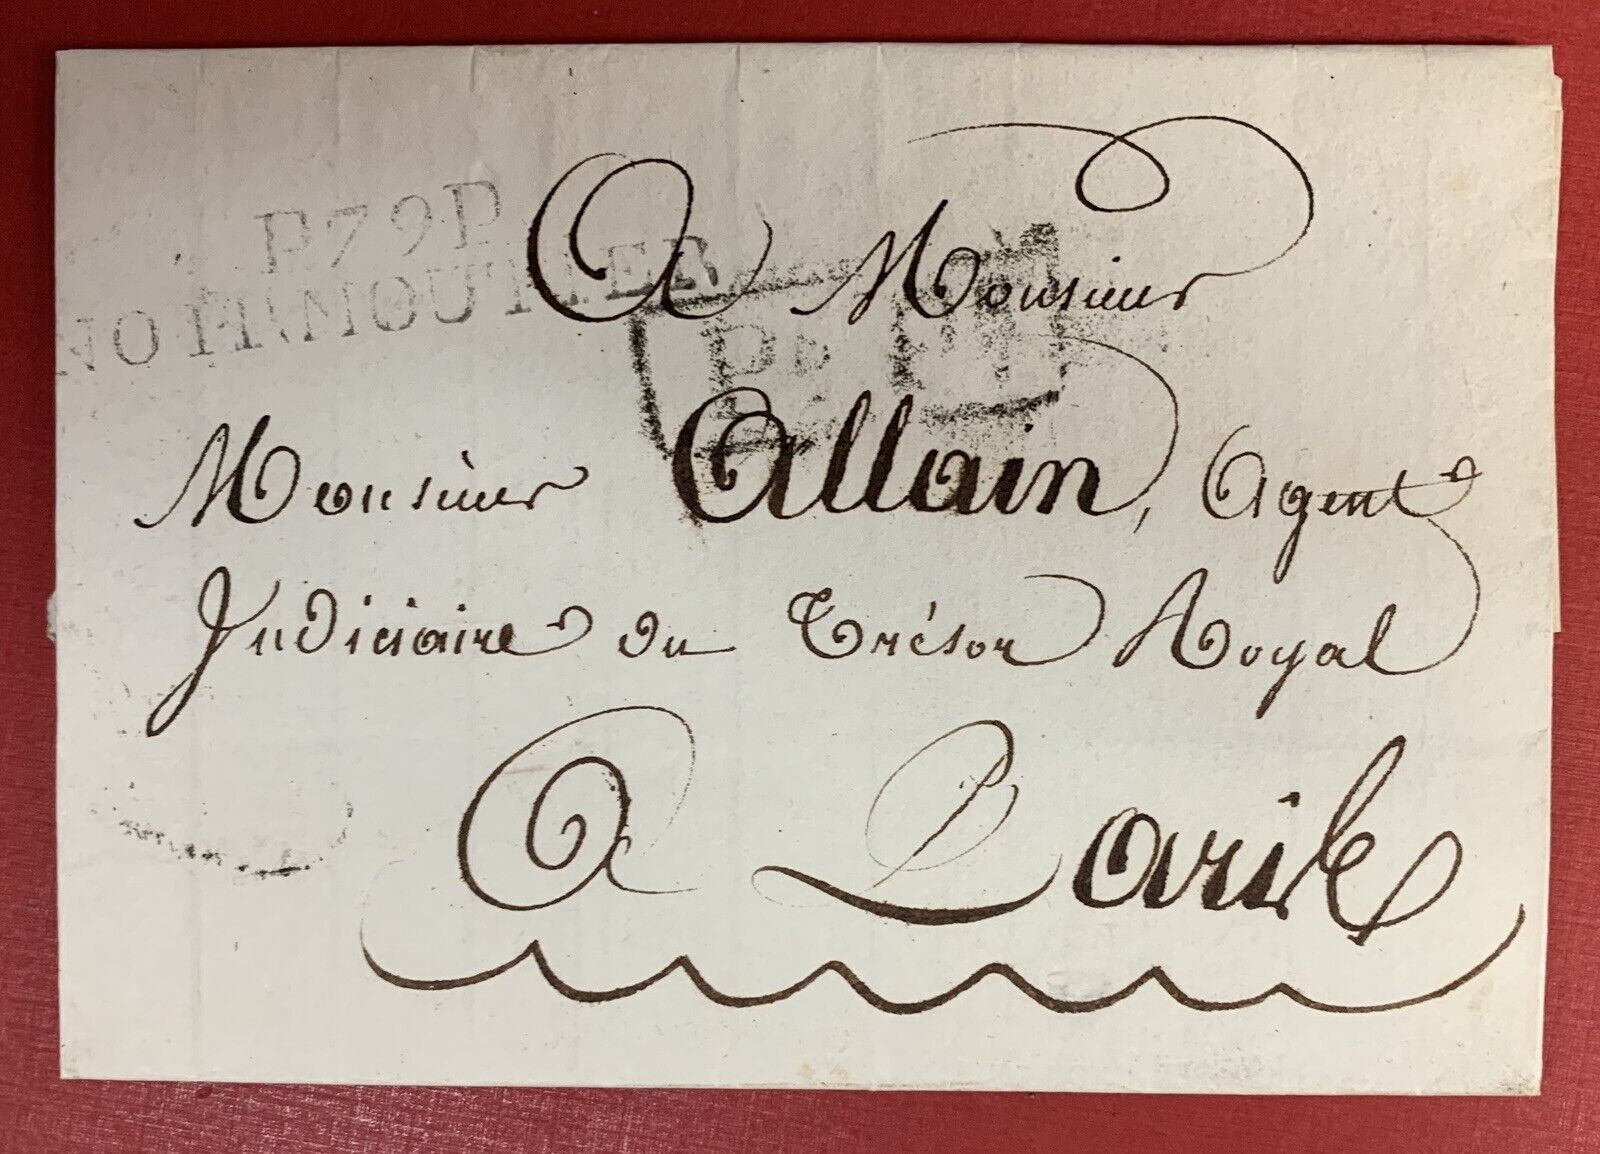 P79P
NOIRMOUTIER
A Monsieur
PP
Monsieur Allain, Agent
Judiciaire du Trésor Royal
A Paris